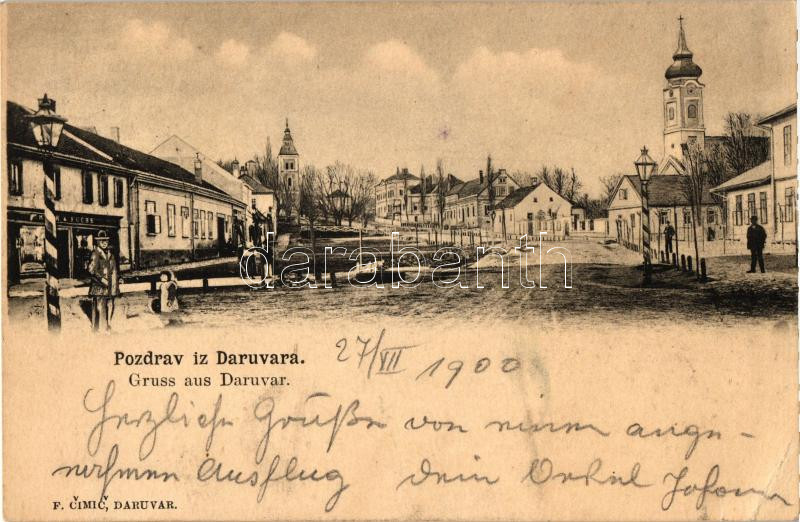 darabanth
Pozdrav iz Daruvara.
Gruss aus Daruvar.
27/VII 1900
Herzliche Grüße von einem ange-
nehmen Ausflug dein Onkel Johann
F. ČIMIČ, DARUVAR.